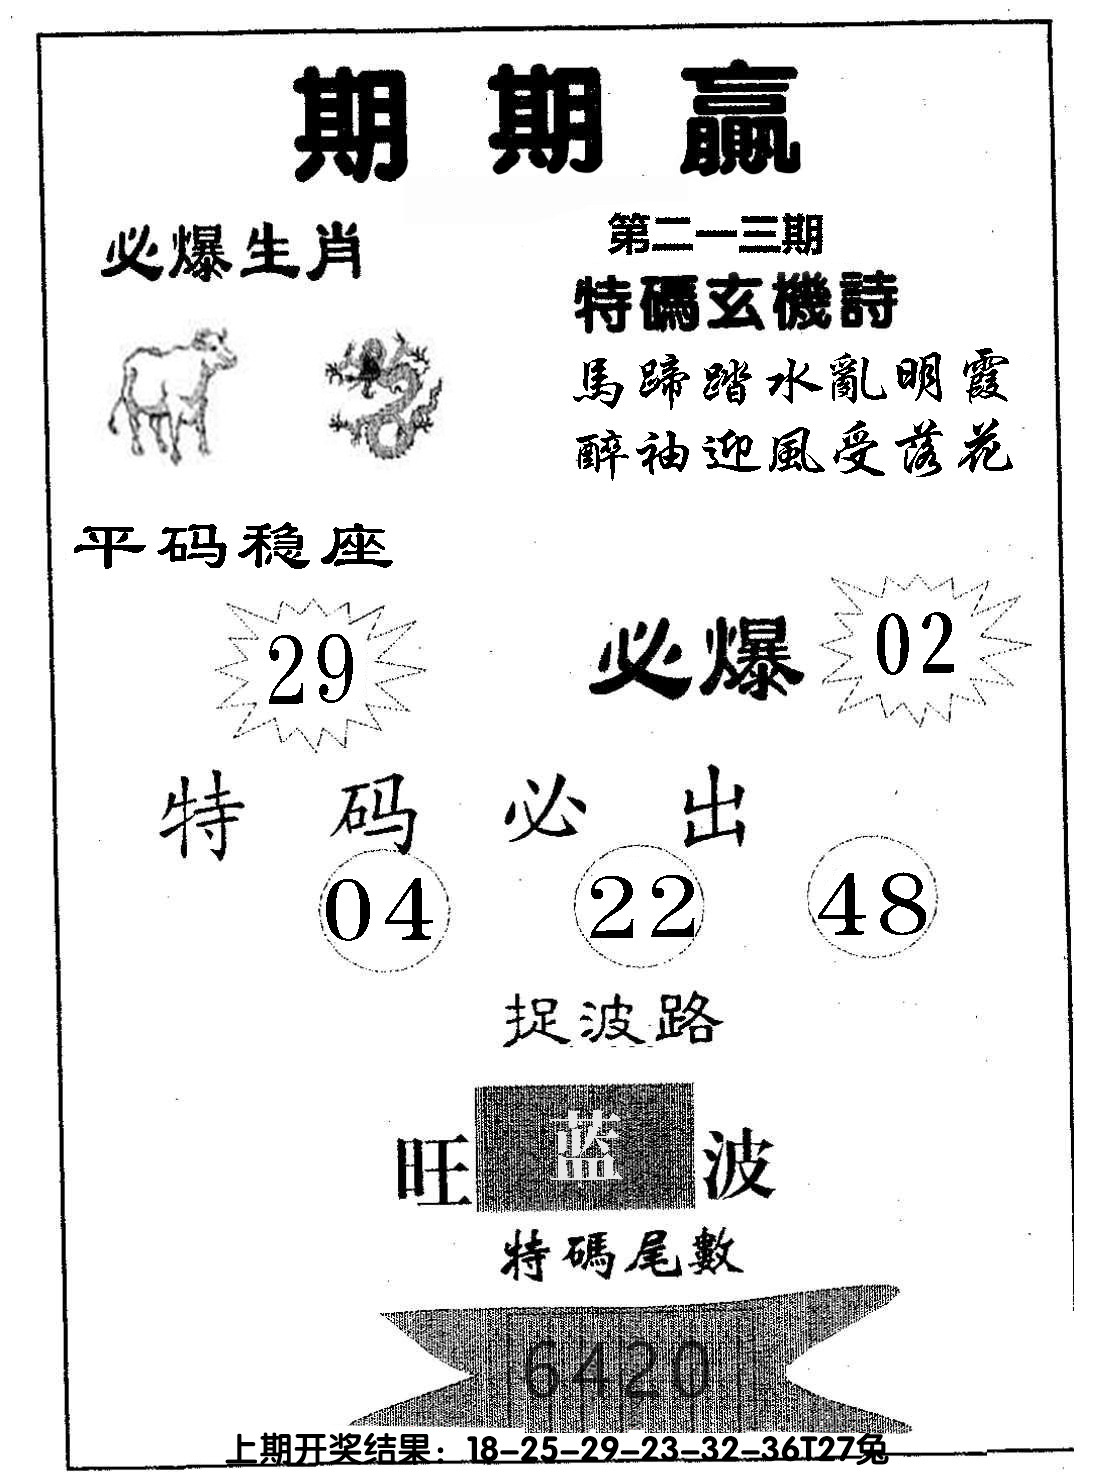 期期赢
第二一三期
必爆生肖
特碼玄機詩
馬蹄踏水亂明霞
醉袖迎風受落花
平码稳座
29
必爆 02
特码必出
04 22 48
捉波路
旺 蓝 波
特碼尾數
6420
上期开奖结果：18-25-29-23-32-36T27兔